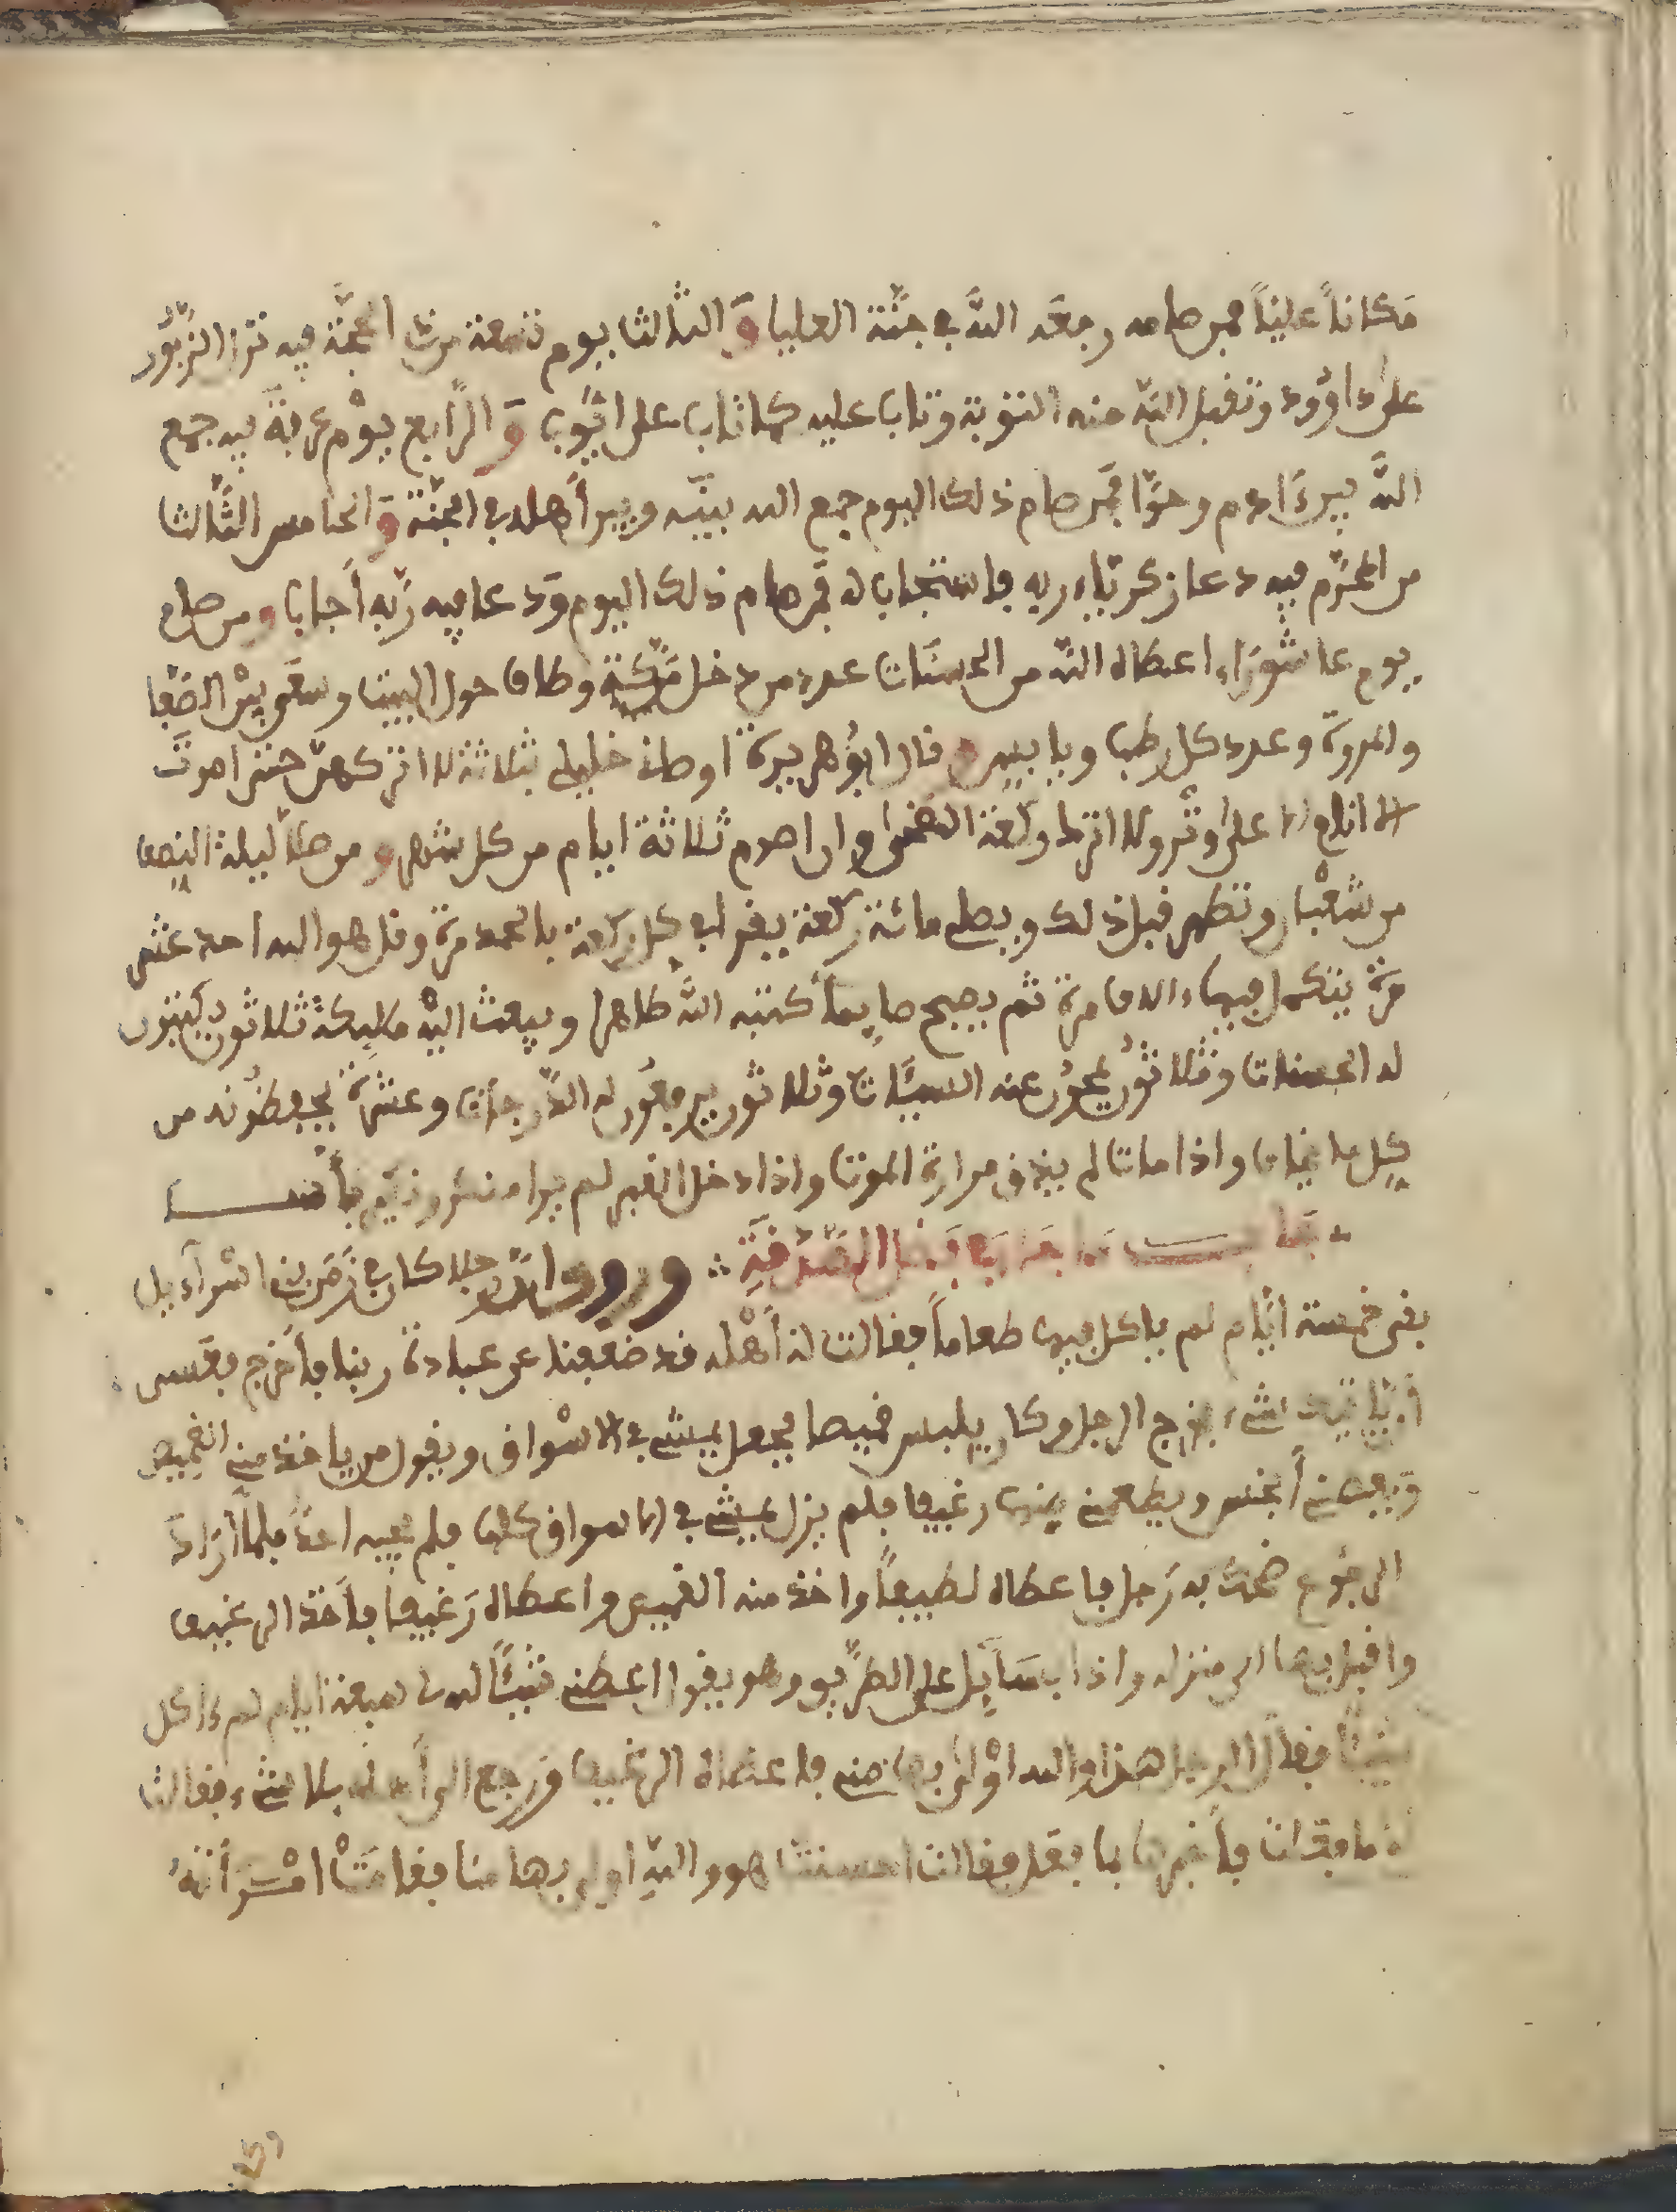 مَكاناً عليّاً فمن صامه رفعَه الله في جنَّة العليا وَالثالث يوم تسعة من ذ الحجَّة فيه نزل الزبُّور
على داوُود وتقبل الله منه التوبة وتاب عليه كما تاب على ايُّوب وَالرَّابع يوْم عرفة فيه جمع
اللَّه بين ءَادم وحوَّا فمَن صام ذلك اليوم جمع الله بينه وبين أهله في الجنَّة وَالخامس الثَّالث
من المحرَّم فيه دعا زكريّاء ربه فاستجاب له فمن صام ذلك اليوم وَدعا فيه ربّه أجاب ومن صام
يوم عاشورَاء اعطاه الله من الحسنَات عدد من دخل مَكّة وطاف حول البيت وسعَى بيْن الصّفا
والمروة وعدد كل رطب ويابيس وقال ابوُ هريرة اوصانى خليلى بثلاثة لا اتركهنّ حتى اموتَ
لا انام الا على وتْر ولا اترك ركعة الضحى وان اصوم ثلاثة ايام من كل شهر ومن صلّا ليلة النصف
من شعْبان وتطهر قبل ذلك ويصلى مائة ركعة يقرا في كل ركعة بالحمد مرة وقل هو الله احد عشر
مَرّة يتكمل فيها الاف مرة ثم يصبح صايما كتبه اللَّه طاهرا ويبعث اليْه ملايكة ثلاثون يكتبون
له الحسنات وثلاثون يمحوْن عنه السيّئات وثلاثون يرفعُون له الدَّرجات وعشرة يحفظونه من
كل ما يخاف واذا مات لم يذق مرارة الموت واذا دخل القبر لم يرا منكر ونكير بأســا
بَـاب مَا جَاء فِي فَضل الصَّدَقَةِ وروى ان رجلا كان في زمَن بنى اسْرآءيل
بقى خمسة ايّام لم ياكل فيها طعاماً فقالت له أهْله قد ضعفنا عن عبادة ربنا فاخرج بعسى
أن تاتينا بشىء فخرج الرجل وكان يلبس قميصا فجعل يمشى في الاسْواق ويقول من ياخذ منى القميص
ويطعمنى منها رغيفا فلم يزل يمشى في الاسواق كلها فلم يجبه احدٌ فلمّا أرَادَ
الرجُوع به رَجل فاعطاه واخذ منه القميص واعطاه رَغيفا فأخذ الرغيف
واقبل بها الى منزله واذا بسَآيل على الطرّيق وهو يقول اعطنى شيئا لله سبعة ايام لم ءاكل
شيئا فقال الرجل هذا والله اوْلىٰ بها منى فاعطاه الرغيف وَرجع الى أهله بلا شىء فقالت
له ما فعلت فأخبرها بما فعل فقالت احسنت هو والله اولى بها منا فقامَتْ امْرَأتهُ